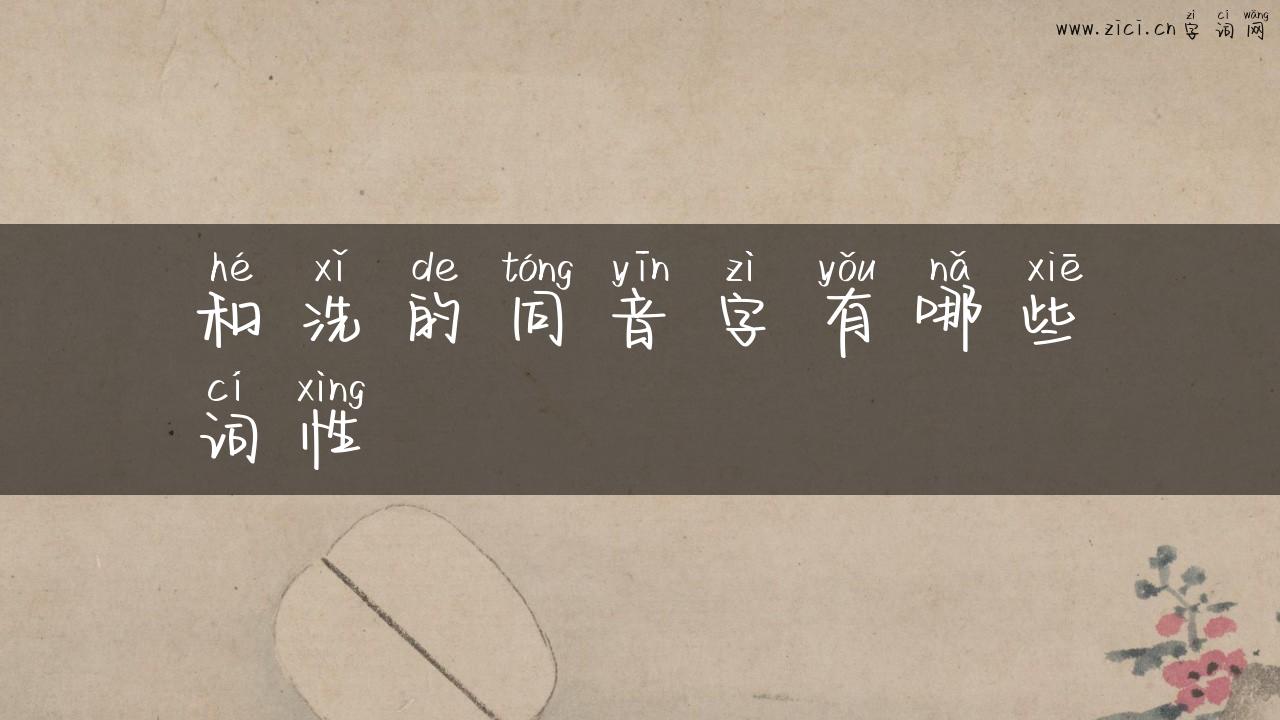 zì cí wǎng
www.zici.cn 字词网
hé xǐ de tóng yīn zì yǒu nǎ xiē
和洗的同音字有哪些
cí xìng
词性